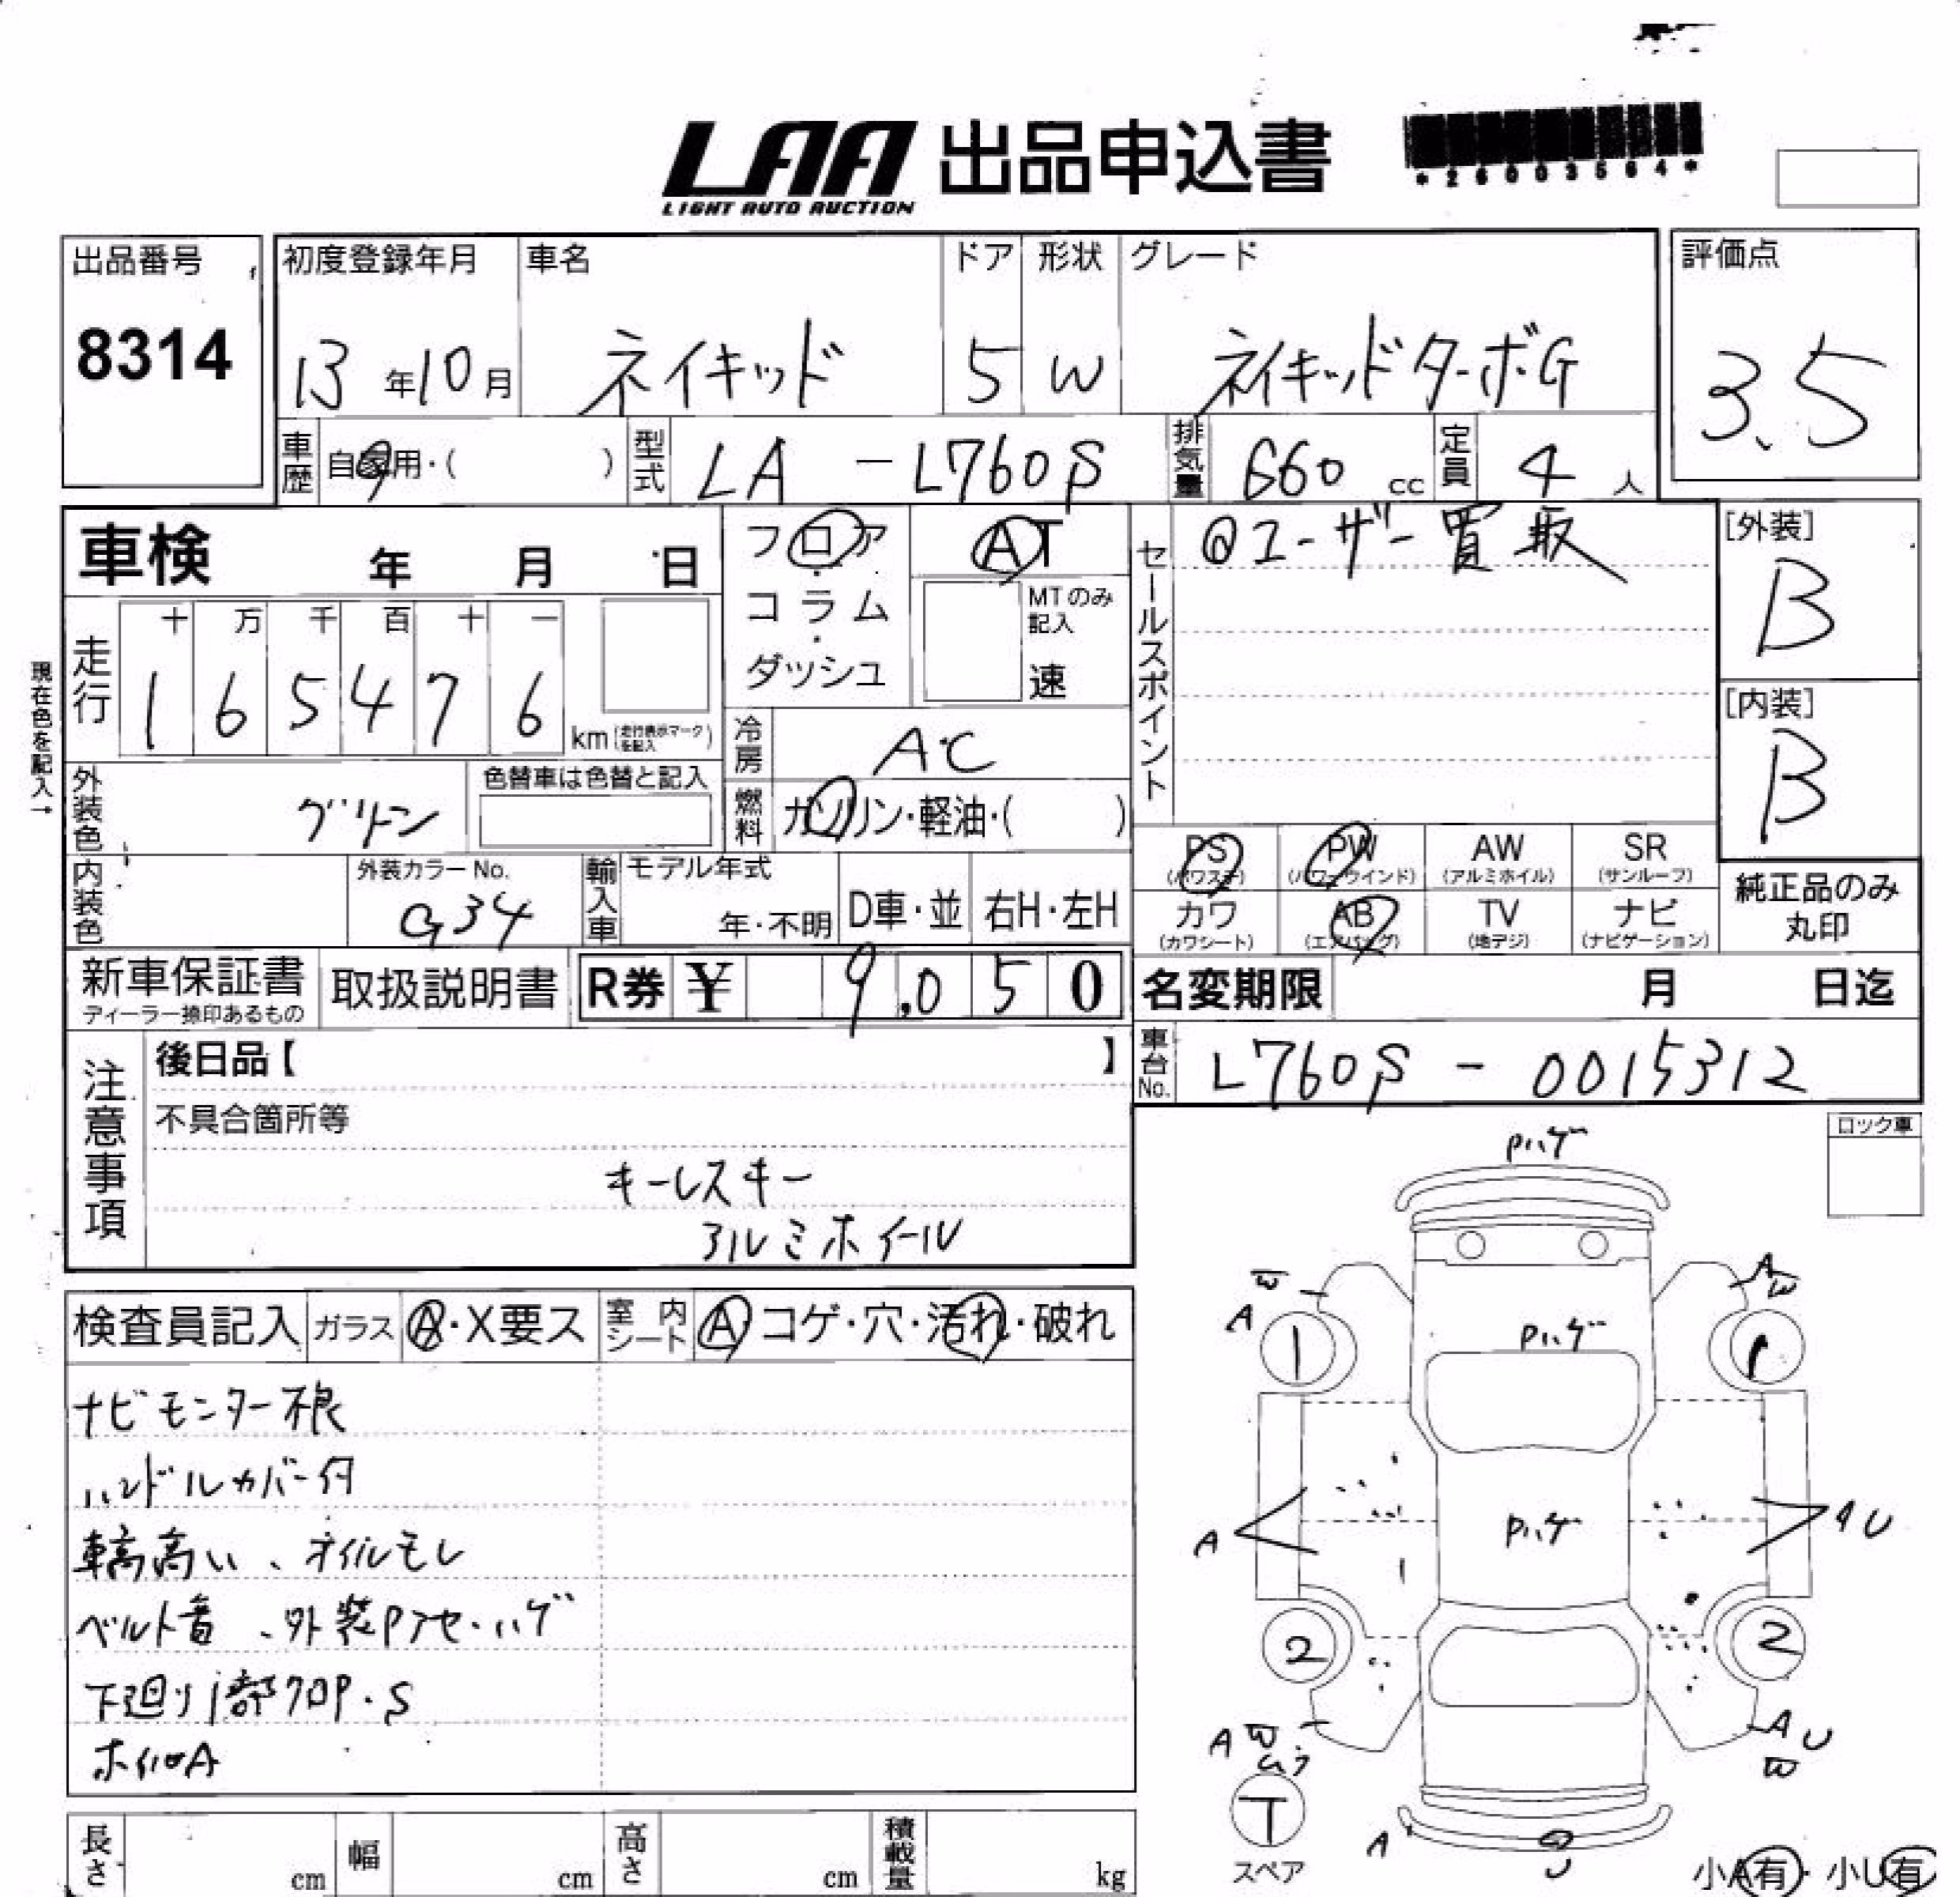 LAA 出品申込書
LIGHT AUTO AUCTION
*26003564*
出品番号
8314
初度登録年月
13年10月
車名
ネイキッド
ドア
5
形状
W
グレード
ネイキッドターボG
評価点
3.5
車歴 自家用・( )
型式 LA-L760S
排気量 660 cc
定員 4 人
車検 年 月 日
フロア・コラム・ダッシュ
AT
MTのみ記入
速
セールスポイント
@ユーザー買取
[外装]
B
[内装]
B
現在色を記入→
走行
十 万 千 百 十 一
1 6 5 4 7 6 km(走行表示マークを記入)
冷房 AC
燃料 ガソリン・軽油・( )
外装色 グリーン
色替車は色替と記入
内装色
外装カラーNo.
G34
輸入車
モデル年式
年・不明
D車・並
右H・左H
PS (パワステ)
PW (パワーウインド)
AW (アルミホイル)
SR (サンルーフ)
カワ (カワシート)
AB (エアバッグ)
TV (地デジ)
ナビ (ナビゲーション)
純正品のみ丸印
新車保証書
ディーラー捺印あるもの
取扱説明書
R券 ¥ 9,050
名変期限 月 日迄
車台No. L760S-0015312
注意事項
後日品【 】
不具合箇所等
キーレスキー
アルミホイール
ロック車
検査員記入
ガラス A・X要ス
室内シート A コゲ・穴・汚れ・破れ
ナビモニター不良
ハンドルカバー付
車高高い、オイルモレ
ベルト音、外装Pアセ・ハゲ
下廻り1部クロP・S
ホイルA
Pハゲ
W
A
A
W
1
Pハゲ
1
A
Pハゲ
AU
2
2
A W
A U
W
T
スペア
A
小A有・小U有
長さ cm
幅 cm
高さ cm
積載量 kg